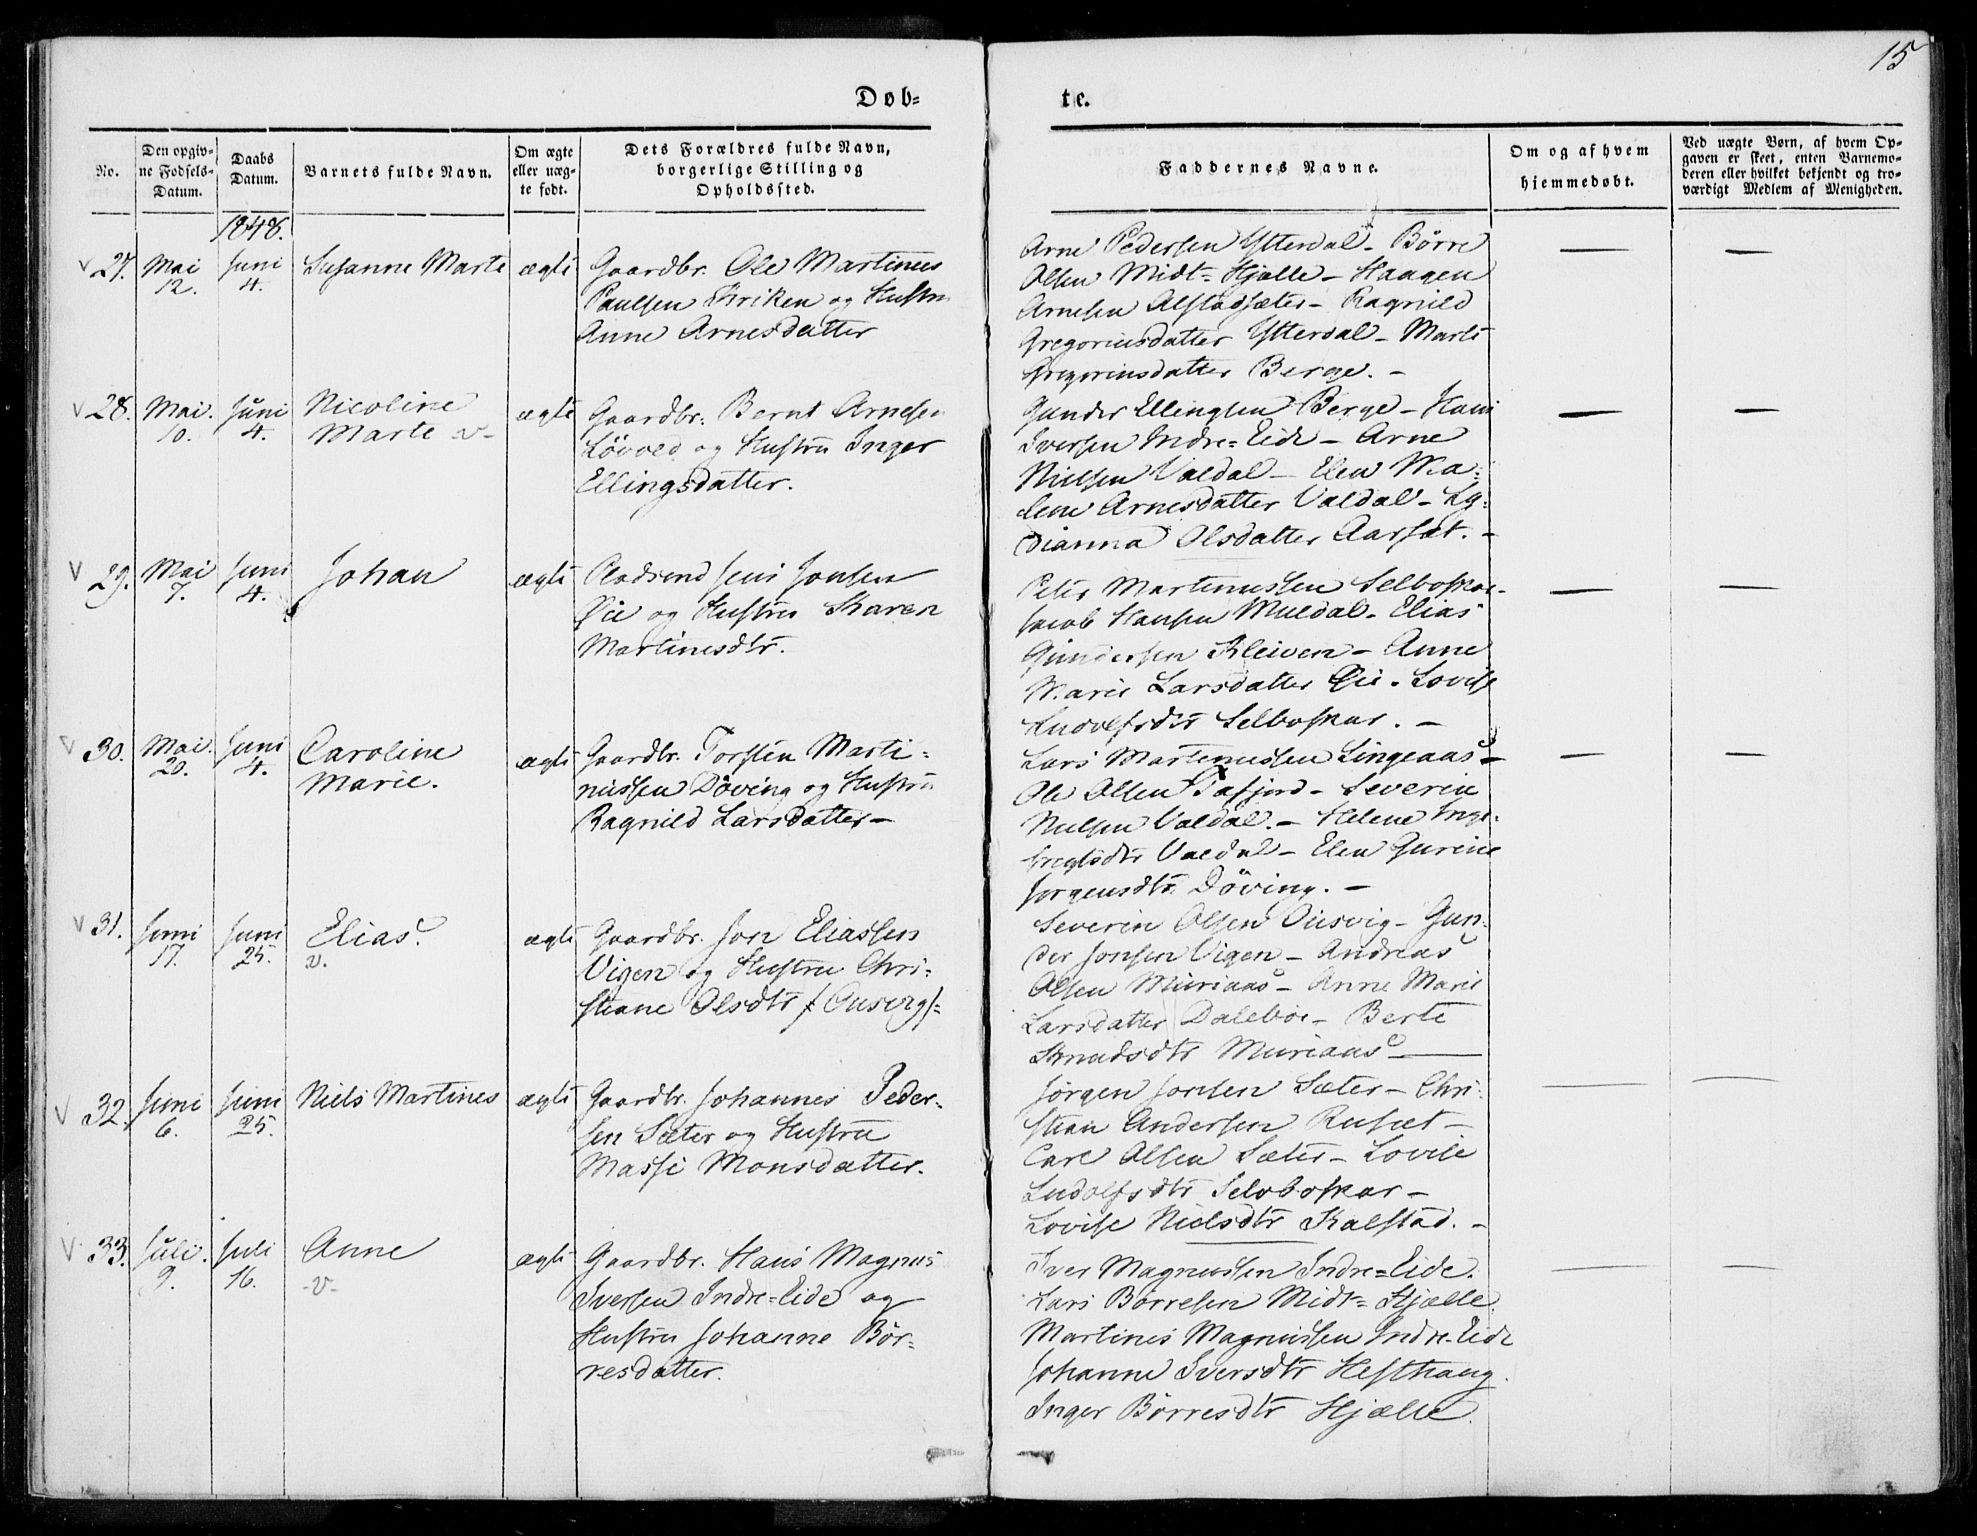 15
Døb-
te.
No.
Den opgiv-
ne Fødsels-
Datum.
Daabs
Datum.
Barnets fulde Navn.
Om ægte
eller uæg-
te født.
Dets Forældres fulde Navn,
borgerlige Stilling og
Opholdssted.
Faddernes Navne.
Om og af hvem
hjemmedøbt.
Ved uægte Børn, af hvem Op-
gaven er skeet, enten Barnemo-
deren eller hvilket bekjendt og tro-
værdigt Medlem af Menigheden.
1848.
v 27. Mai 12. Juni 4. Susanne Marte ægte
Gaardbr. Ole Martinus
Paulsen Kriken og Hustru
Anne Arnesdatter
Arne Pedersen Ytterdal - Börre
Olsen Midt-Hjelle - Haagen
Arnesen Alstadsæter - Ragnild
Gregoriusdatter Ytterdal - Marte
Gregoriusdatter Berge. -
v 28. Mai. 10. Juni 4. Nicoline
Marte -v- ægte
Gaardbr. Bernt Arnesen
Lövold og Hustru Inger
Ellingsdatter.
Gunder Ellingsen Berge - Hans
Iversen Indre-Eide - Arne
Nielsen Valdal - Elen Ma-
lene Arnesdatter Valdal - Ly-
dianna Olsdatter Aarset. -
v 29. Mai 7. Juni 4. Johan ægte
Pladsmd Jens Jonsen
Øie og Hustru Karen
Martinusdtr.
Peter Martinussen Selboskar -
Jacob Hansen Muldal - Elias
Gundersen Kleiven - Anne
Marie Larsdatter Øie - Lovise
Ludolfsdtr Selboskar. -
v 30. Mai. 20. Juni 4. Caroline
Marie. ægte
Gaardbr. Torsten Marti-
nussen Döving og Hustru
Ragnild Larsdatter -
Lars Martinussen Lingeaas -
Ole Olsen Tafjord - Severin
Nielsen Valdal. - Helene Inge-
bregtsdtr Valdal - Elen Gurine
Jörgensdtr Döving. -
v 31. Juni 17. Juni 25. Elias.
v. ægte
Gaardbr. Jon Eliassen
Vigen og Hustru Chri-
stiane Olsdtr /Onsvig/-
Severin Olsen Onsvig - Gun-
der Jonsen Vigen - Andreas
Olsen Muriaas - Anne Marie
Larsdatter Dalebøe - Berte
Knudsdtr Muriaas -
v 32. Juni 6. Juni 25. Niels Martines ægte
Gaardbr. Johannes Peder-
sen Sæter og Hustru
Massi Monsdatter.
Jørgen Jonsen Sæter - Chri-
stian Andersen Ruset -
Carl Olsen Sæter - Lovise
Ludolfsdtr Selboskar -
Lovise Nielsdtr Kalstad. -
v 33. Juli. 9. Juli 16. Anne
-v- ægte
Gaardbr. Hans Magnus
Iversen Indre-Eide og
Hustru Johanne Bör-
resdatter.
Iver Magnussen Indre-Eide.
Lars Börresen Midt-Hjælle
Martines Magnussen Indre-Eide
Johanne Iversdtr Hesthaug.
Inger Börresdtr Hjælle.